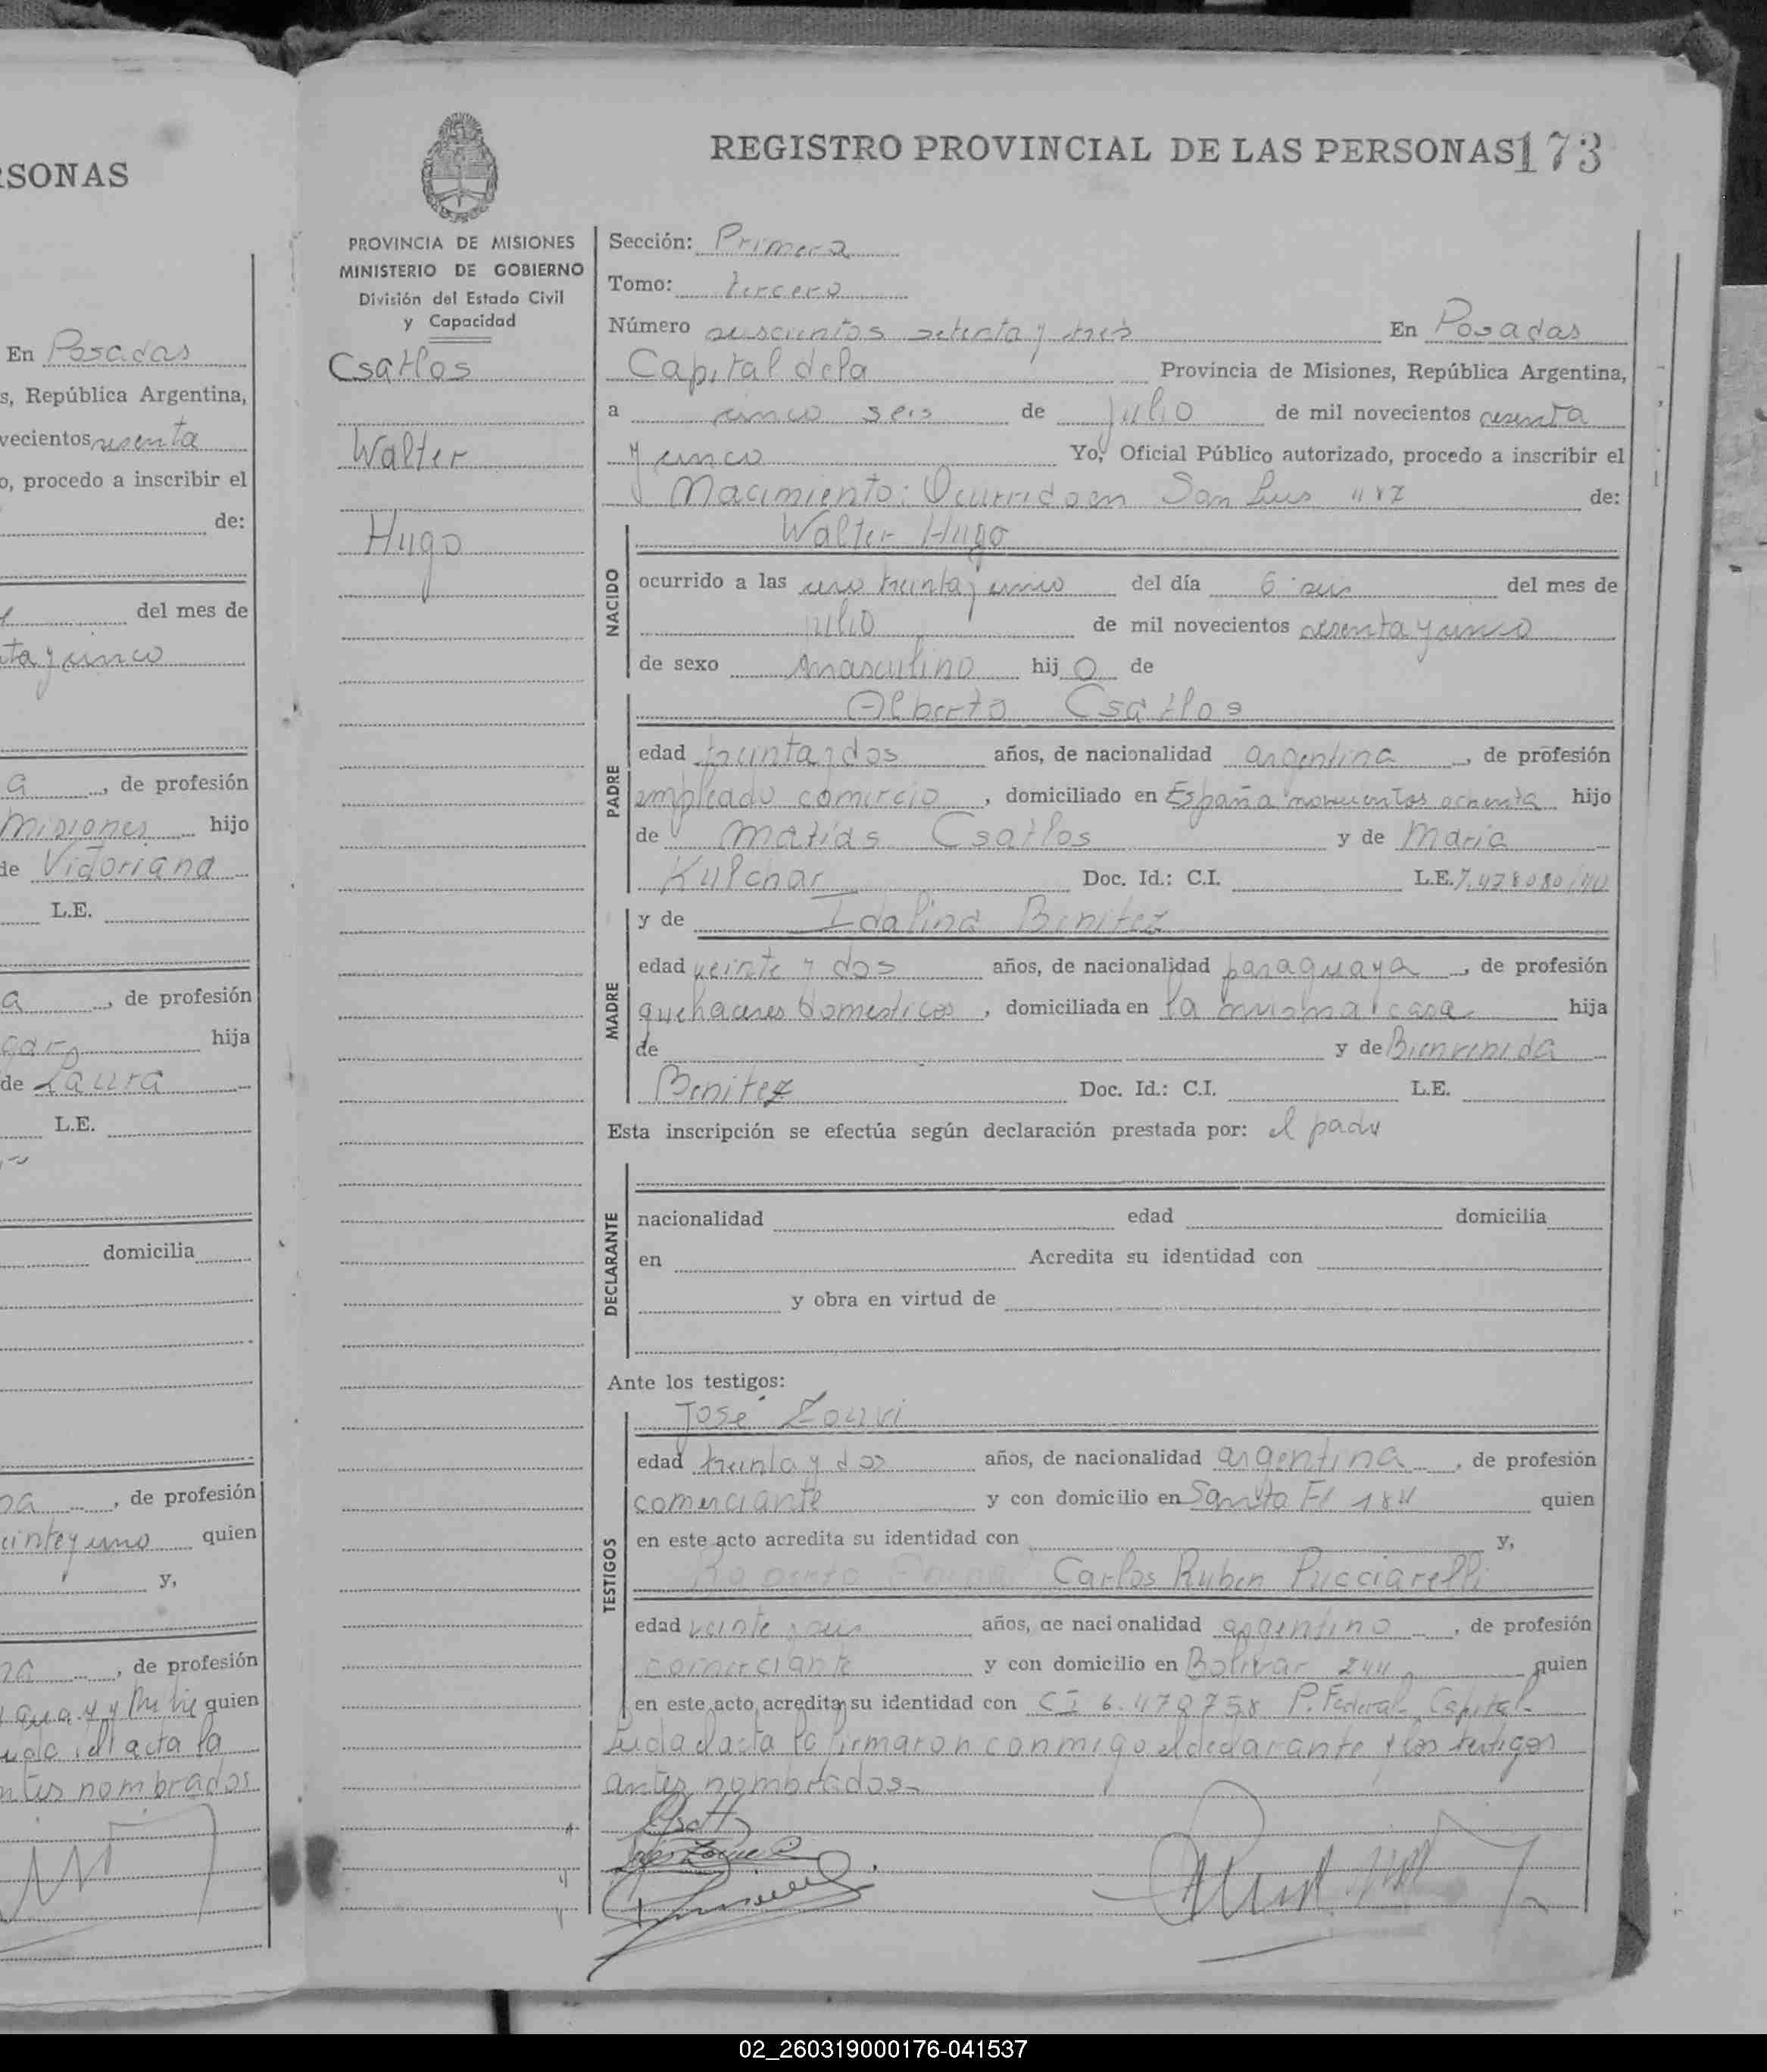 RSONAS
En Posadas
s, República Argentina,
vecientos sesenta
o, procedo a inscribir el
de:
del mes de
ta y cinco
a, de profesión
Misiones hijo
de Victoriana
L.E.
a, de profesión
hija
de Laura
L.E.
domicilia
na, de profesión
quien
y,
na, de profesión
quien
acta la
ntes nombrados
REGISTRO PROVINCIAL DE LAS PERSONAS 173
PROVINCIA DE MISIONES
MINISTERIO DE GOBIERNO
División del Estado Civil
y Capacidad
Csatlos
Walter
Hugo
Sección: Primera
Tomo: tercero
Número setenta y tres En Posadas
Capital de la Provincia de Misiones, República Argentina,
a cinco seis de julio de mil novecientos sesenta
y cinco Yo, Oficial Público autorizado, procedo a inscribir el
Nacimiento: Ocurrido en San Luis de:
Walter Hugo
NACIDO
ocurrido a las uno treinta y cinco del día 6 seis del mes de
julio de mil novecientos sesenta y cinco
de sexo masculino hijo de
PADRE
Alberto Csatlos
edad treinta y dos años, de nacionalidad argentina, de profesión
empleado comercio, domiciliado en España novecientos ochenta hijo
de Matias Csatlos y de Maria
Kulchar Doc. Id.: C.I. L.E.
MADRE
y de Idalina Benitez
edad veinte y dos años, de nacionalidad paraguaya, de profesión
quehaceres domesticos, domiciliada en la misma casa hija
de y de Bienvenida
Benitez Doc. Id.: C.I. L.E.
Esta inscripción se efectúa según declaración prestada por: el padre
DECLARANTE
nacionalidad edad domicilia
en Acredita su identidad con
y obra en virtud de
Ante los testigos:
TESTIGOS
José
edad treinta y dos años, de nacionalidad argentina, de profesión
comerciante y con domicilio en Santa Fe 184 quien
en este acto acredita su identidad con y,
Carlos Ruben Pucciarelli
edad veinte y seis años, de nacionalidad argentino, de profesión
comerciante y con domicilio en Bolivar 244 quien
en este acto acredita su identidad con CI 6.479758 P. Federal Capital
Leida el acta la firmaron conmigo el declarante y los testigos
antes nombrados
02_260319000176-041537